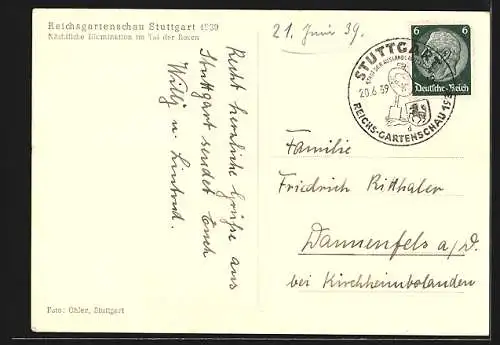 Reichsgartenschau Stuttgart 1939
Nächtliche Illumination im Tal der Rosen
21. Juni 39.
STUTTGART
20.6.39
REICHS-GARTENSCHAU 193
6 6
Deutsches Reich
Recht herzliche Grüße aus
Stuttgart sendet Euch
Willy u.
Familie
Friedrich Ritthaler
Dannenfels a/D.
bei Kirchheimbolanden
Foto: Ohler, Stuttgart